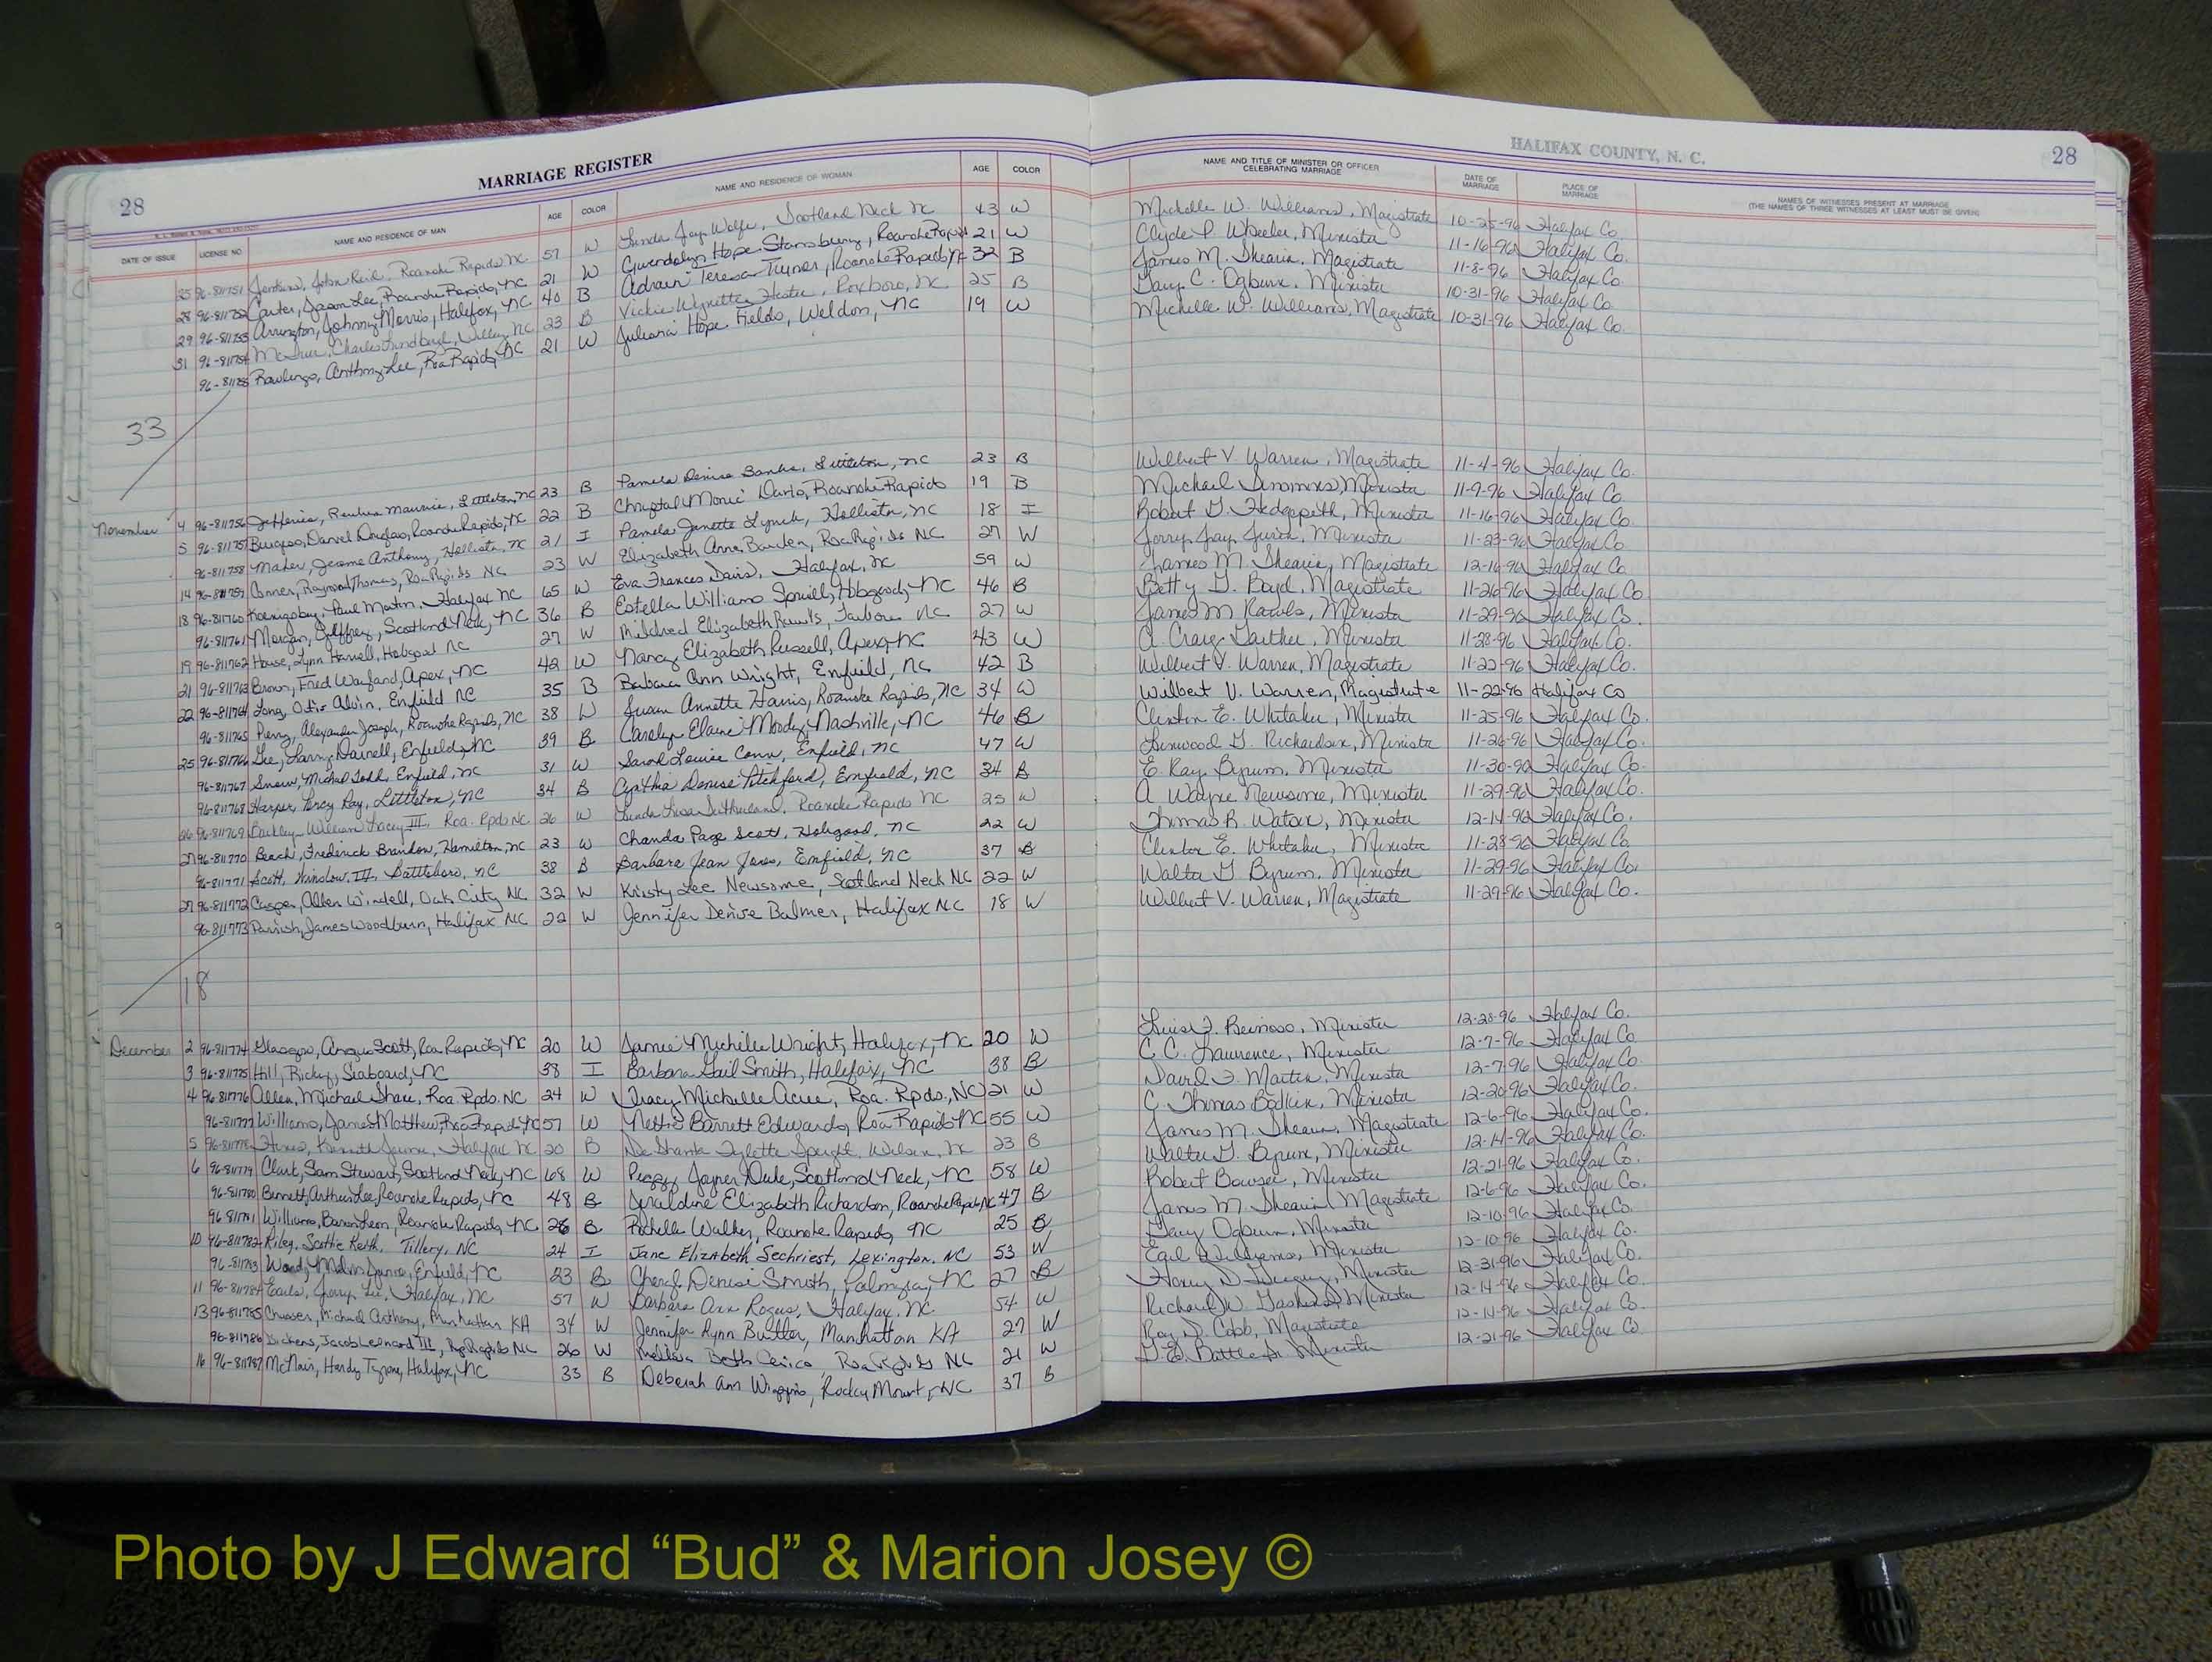 28
MARRIAGE REGISTER
HALIFAX COUNTY, N. C.
28
DATE OF ISSUE LICENSE NO. NAME AND RESIDENCE OF MAN AGE COLOR NAME AND RESIDENCE OF WOMAN AGE COLOR NAME AND TITLE OF MINISTER OR OFFICER CELEBRATING MARRIAGE DATE OF MARRIAGE PLACE OF MARRIAGE NAMES OF WITNESSES PRESENT AT MARRIAGE (THE NAMES OF THREE WITNESSES AT LEAST MUST BE GIVEN)
25 96-811751 Jenkins, John Reid, Roanoke Rapids NC 57 W Linda Joy Wolfe, Scotland Neck NC 43 W Michelle W. Williams, Magistrate 10-25-96 Halifax Co.
28 96-811752 Carter, Jason Lee, Roanoke Rapids, NC 21 W Gwendolyn Hope Stansbury, Roanoke Rapids 21 W Clyde P. Wheeler, Minister 11-16-96 Halifax Co.
29 96-811753 Arrington, Johnny Morris, Halifax, NC 40 B Adrain Teresa Turner, Roanoke Rapids NC 32 B James M. Shearin, Magistrate 11-8-96 Halifax Co.
31 96-811754 Charles Lindbergh, NC 23 B Vickie Wynette Hester, Roxboro, NC 25 B Gary C. Ogburn, Minister 10-31-96 Halifax Co.
96-811755 Rawlings, Anthony Lee, Roa Rapids, NC 21 W Juliana Hope Fields, Weldon, NC 19 W Michelle W. Williams, Magistrate 10-31-96 Halifax Co.
33
November 4 96-811756 Jefferies, Maurice, Littleton, NC 23 B Pamela Denise Banks, Littleton, NC 23 B Wilbert V. Warren, Magistrate 11-4-96 Halifax Co.
5 96-811757 Burgess, Daniel Douglas, Roanoke Rapids, NC 22 B Chrystal Monic Roanoke Rapids 19 B Michael Simmons, Minister 11-9-96 Halifax Co.
96-811758 Jerome Anthony, Hollister, NC 21 I Pamela Janette Lynch, Hollister, NC 18 I Robert G. Hedgepeth, Minister 11-16-96 Halifax Co.
14 96-811759 Conner, Raymond Thomas, Roa Rapids NC 23 W Elizabeth Anne Roa Rapids NC 27 W Jerry Jay Minister 11-23-96 Halifax Co.
18 96-811760 Paul Martin, Halifax NC 65 W Eva Frances Davis, Halifax, NC 59 W James M. Shearin, Magistrate 12-16-96 Halifax Co
96-811761 Morgan, Scotland Neck, NC 36 B Estella Williams Spruill, Hobgood, NC 46 B Betty G. Boyd, Magistrate 11-26-96 Halifax Co
19 96-811762 House, Lynn Harrell, Hobgood NC 27 W Mildred Elizabeth Tarboro NC 27 W James M Rawls, Minister 11-29-96 Halifax Co.
21 96-811763 Brown, Fred Wayland, Apex, NC 42 W Nancy Elizabeth Russell, Apex, NC 43 W A. Craig Gaither, Minister 11-28-96 Halifax Co.
22 96-811764 Long, Otis Alvin, Enfield NC 35 B Barbara Ann Wright, Enfield, NC 42 B Wilbert V. Warren, Magistrate 11-22-96 Halifax Co.
96-811765 Perry, Alexander Joseph, Roanoke Rapids, NC 38 W Susan Annette Harris, Roanoke Rapids, NC 34 W Wilbert V. Warren, Magistrate 11-22-96 Halifax Co
25 96-811766 Lee, Larry Darnell, Enfield, NC 39 B Carolyn Elaine Moody, Nashville, NC 46 B Clinton E. Whitaker, Minister 11-25-96 Halifax Co.
96-811767 Snow, Michael Todd, Enfield, NC 31 W Sarah Louise Conn, Enfield, NC 47 W Linwood G. Richardson, Minister 11-26-96 Halifax Co.
96-811768 Harper, Percy Ray, Littleton, NC 34 B Cynthia Denise Pitchford, Enfield, NC 34 B E. Ray Byrum, Minister 11-30-96 Halifax Co.
26 96-811769 William III, Roa. Rpds NC 26 W Linda Roanoke Rapids NC 25 W A Wayne Newsome, Minister 11-29-96 Halifax Co.
27 96-811770 Beach, Frederick Brandon, Hamilton, NC 23 W Chanda Page Scott, Hobgood, NC 22 W Thomas R. Watson, Minister 12-14-96 Halifax Co.
96-811771 Scott, Winslow, III, Battleboro, NC 38 B Barbara Jean Jones, Enfield, NC 37 B Clinton E. Whitaker, Minister 11-28-96 Halifax Co.
27 96-811772 Casper, Allen Windell, Oak City, NC 32 W Kristy Lee Newsome, Scotland Neck NC 22 W Walter G. Byrum, Minister 11-29-96 Halifax Co.
96-811773 Parrish, James Woodburn, Halifax NC 22 W Jennifer Denise Balmer, Halifax NC 18 W Wilbert V. Warren, Magistrate 11-29-96 Halifax Co.
18
December 2 96-811774 Glasgow, Angus Scott, Roa Rapids, NC 20 W Jamie Michelle Wright, Halifax, NC 20 W Minister 12-28-96 Halifax Co.
3 96-811775 Hill, Ricky, Seaboard, NC 38 I Barbara Gail Smith, Halifax, NC 38 B C. C. Lawrence, Minister 12-7-96 Halifax Co.
4 96-811776 Allen, Michael Shane, Roa. Rpds. NC 24 W Tracy Michelle Acree, Roa. Rpds., NC 21 W David F. Martin, Minister 12-7-96 Halifax Co
96-811777 Williams, James Matthew, Roa Rapids NC 57 W Nettie Barrett Edwards, Roa Rapids NC 55 W C. Thomas Minister 12-20-96 Halifax Co.
5 96-811778 Kenneth Halifax NC 20 B De Shanta Speight, Wilson, NC 23 B James M. Shearin, Magistrate 12-6-96 Halifax Co.
6 96-811779 Clark, Sam Stewart, Scotland Neck, NC 68 W Peggy Joyner Dule, Scotland Neck, NC 58 W Walter G. Byrum, Minister 12-14-96 Halifax Co.
96-811780 Bennett, Arthur Lee, Roanoke Rapids, NC 48 B Geraldine Elizabeth Richardson, Roanoke Rapids, NC 47 B Robert Bowser, Minister 12-21-96 Halifax Co.
96-811781 Williams, Baron Leon, Roanoke Rapids, NC 26 B Rochelle Walker, Roanoke Rapids, NC 25 B James M. Shearin Magistrate 12-6-96 Halifax Co.
10 96-811782 Riley, Scottie Keith, Tillery, NC 24 I Jane Elizabeth Sechriest, Lexington, NC 53 W Gary Ogburn, Minister 12-10-96 Halifax Co.
96-811783 Enfield, NC 23 B Cheryl Denise Smith, Palmyra, NC 27 B Earl Williams, Minister 12-10-96 Halifax Co.
11 96-811784 Earls, Jerry Lee, Halifax, NC 57 W Barbara Ann Halifax, NC 54 W Minister 12-31-96 Halifax Co.
13 96-811785 Michael Anthony, Manhattan KA 34 W Jennifer Lynn Butler, Manhattan KA 27 W Richard W. Minister 12-14-96 Halifax Co.
96-811786 Dickens, Jacob Leonard III, NC 26 W Melissa Beth Roa Rapids NC 21 W Roy D. Cobb, Magistrate 12-14-96 Halifax Co.
16 96-811787 McNair, Hardy Tyrone, Halifax, NC 33 B Deborah Ann Wiggins, Rocky Mount, NC 37 B Minister 12-21-96 Halifax Co
Photo by J Edward “Bud” & Marion Josey ©